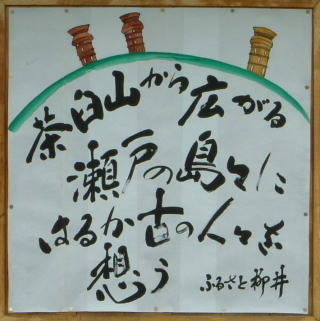 茶臼山から広がる
瀬戸の島々に
はるか古の人々を
想う
ふるさと柳井